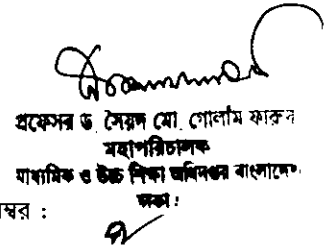 প্রফেসর ড. সৈয়দ মো. গোলাম ফারুক
মহাপরিচালক
মাধ্যমিক ও উচ্চ শিক্ষা অধিদপ্তর বাংলাদেশ
ঢাকা।
ম্বর :